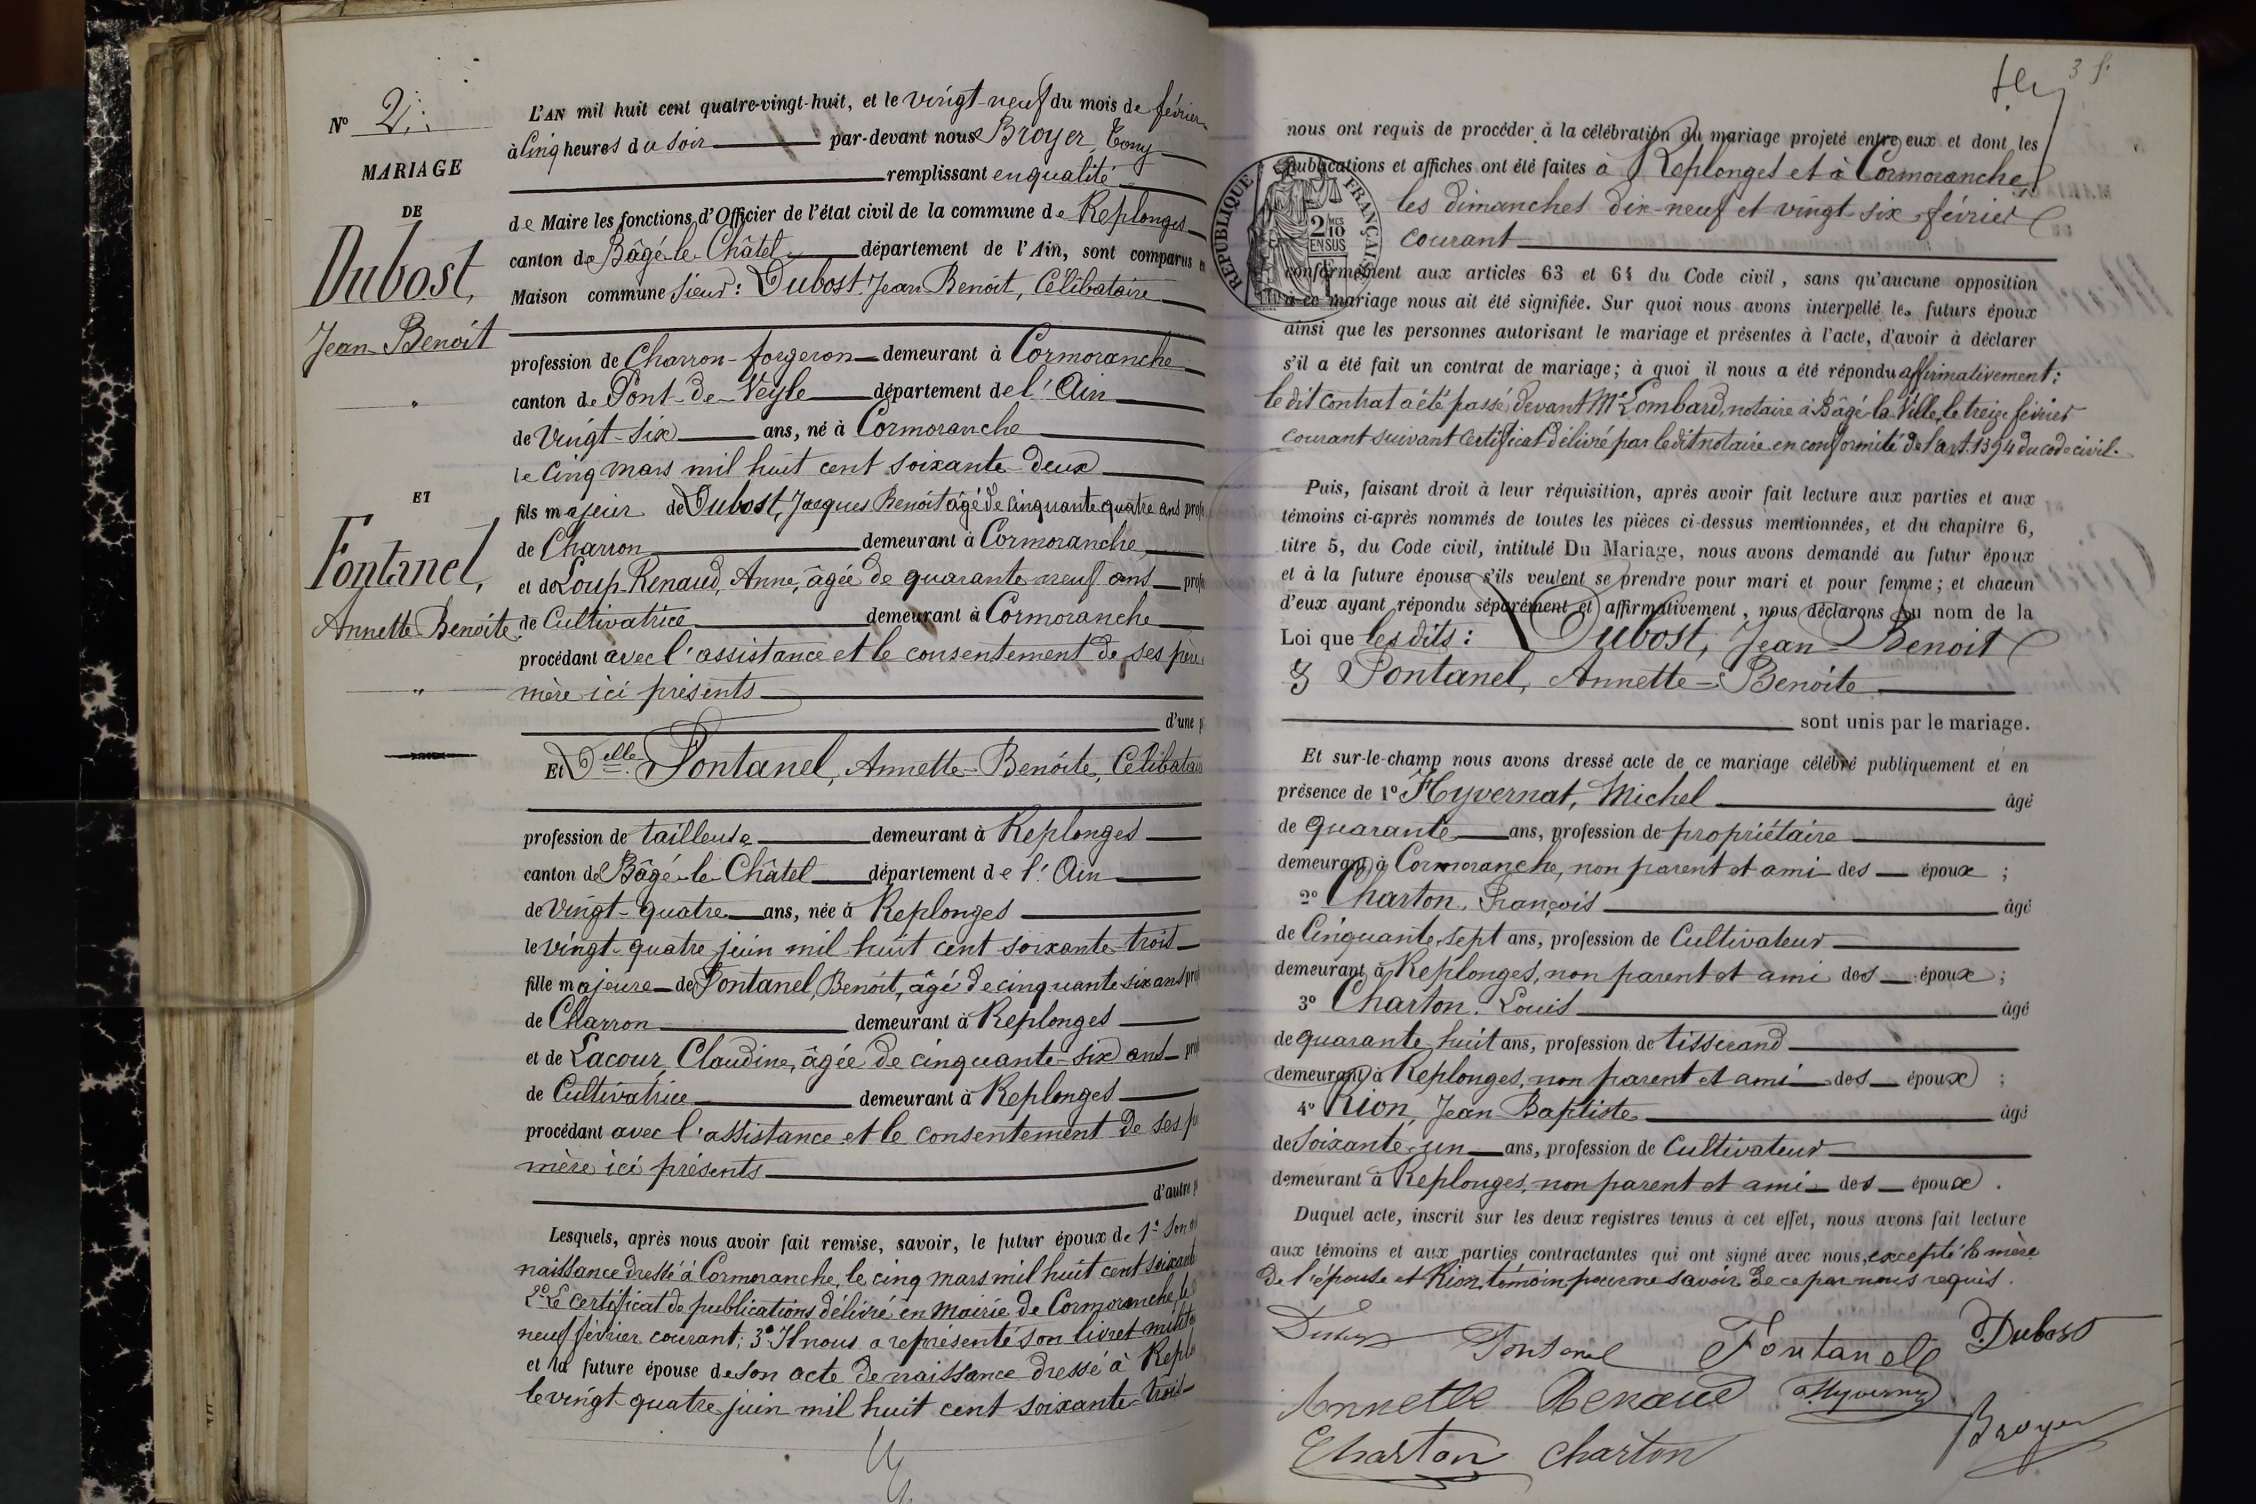 Nº 2
MARIAGE
DE
Dubost,
Jean Benoit
ET
Fontanel,
Annette Benoîte.
L'AN mil huit cent quatre-vingt-huit, et le vingt-neuf du mois de février
à cinq heures du soir par-devant nous Broyer, Tony
remplissant en qualité
de Maire les fonctions d'Officier de l'état civil de la commune de Replonges
canton de Bâgé-le-Châtel département de l'Ain, sont comparus en
Maison commune Sieur : Dubost Jean Benoit, Célibataire
profession de Charron-forgeron demeurant à Cormoranche
canton de Pont-de-Veyle département de l'Ain
de vingt-six ans, né à Cormoranche
le cinq mars mil huit cent soixante-deux
fils majeur de Dubost, Jacques Benoit âgé de cinquante quatre ans prof
de Charron demeurant à Cormoranche
et de Loup-Renaud, Anne, âgée de quarante-neuf ans prof
de Cultivatrice demeurant à Cormoranche
procédant avec l'assistance et le consentement de ses père
mère ici présents
d'une p
Et Delle Fontanel, Annette-Benoîte, Célibataire
profession de tailleuse demeurant à Replonges
canton de Bâgé-le-Châtel département de l'Ain
de vingt-quatre ans, née à Replonges
le vingt-quatre juin mil huit cent soixante-trois
fille majeure de Fontanel, Benoit, âgé de cinquante-six ans prof
de Charron demeurant à Replonges
et de Lacour, Claudine, âgée de cinquante-six ans prof
de Cultivatrice demeurant à Replonges
procédant avec l'assistance et le consentement de ses p
mère ici présents
d'autre p
Lesquels, après nous avoir fait remise, savoir, le futur époux de 1º Son
naissance dressé à Cormoranche, le cinq mars mil huit cent soixante
2º Le certificat de publications délivré en mairie de Cormoranche, le
neuf février courant; 3º Il nous a représenté son livret milit
et la future épouse de son acte de naissance dressé à Replo
le vingt-quatre juin mil huit cent soixante-trois
3 f.
nous ont requis de procéder à la célébration du mariage projeté entre eux et dont les
publications et affiches ont été faites à Replonges et à Cormoranche
les dimanches dix-neuf et vingt six février
courant
RÉPUBLIQUE FRANÇAISE
2/10
EN SUS
conformément aux articles 63 et 64 du Code civil, sans qu'aucune opposition
à ce mariage nous ait été signifiée. Sur quoi nous avons interpellé les futurs époux
ainsi que les personnes autorisant le mariage et présentes à l'acte, d'avoir à déclarer
s'il a été fait un contrat de mariage; à quoi il nous a été répondu affirmativement :
le dit contrat a été passé devant Me Lombard, notaire à Bâgé-la-Ville, le treize février
courant suivant certificat délivré par le dit notaire en conformité de l'art. 1394 du code civil.
Puis, faisant droit à leur réquisition, après avoir fait lecture aux parties et aux
témoins ci-après nommés de toutes les pièces ci-dessus mentionnées, et du chapitre 6,
titre 5, du Code civil, intitulé Du Mariage, nous avons demandé au futur époux
et à la future épouse s'ils veulent se prendre pour mari et pour femme; et chacun
d'eux ayant répondu séparément et affirmativement, nous déclarons au nom de la
Loi que les dits : Dubost, Jean Benoit
& Fontanel, Annette-Benoîte
sont unis par le mariage.
Et sur-le-champ nous avons dressé acte de ce mariage célébré publiquement et en
présence de 1º Hyvernat, Michel âgé
de quarante ans, profession de propriétaire
demeurant à Cormoranche, non parent et ami des époux ;
2º Charton, François âgé
de Cinquante-sept ans, profession de Cultivateur
demeurant à Replonges, non parent et ami des époux ;
3º Charton, Louis âgé
de quarante huit ans, profession de tisserand
demeurant à Replonges, non parent et ami des époux ;
4º Rion, Jean Baptiste âgé
de soixante-un ans, profession de Cultivateur
demeurant à Replonges, non parent et ami des époux.
Duquel acte, inscrit sur les deux registres tenus à cet effet, nous avons fait lecture
aux témoins et aux parties contractantes qui ont signé avec nous, excepté la mère
de l'épouse et Rion, témoin pour ne savoir de ce par nous requis.
Fontanel Fontanell Dubost
Annette Renaud Hyvernat
Broyer
Charton Charton